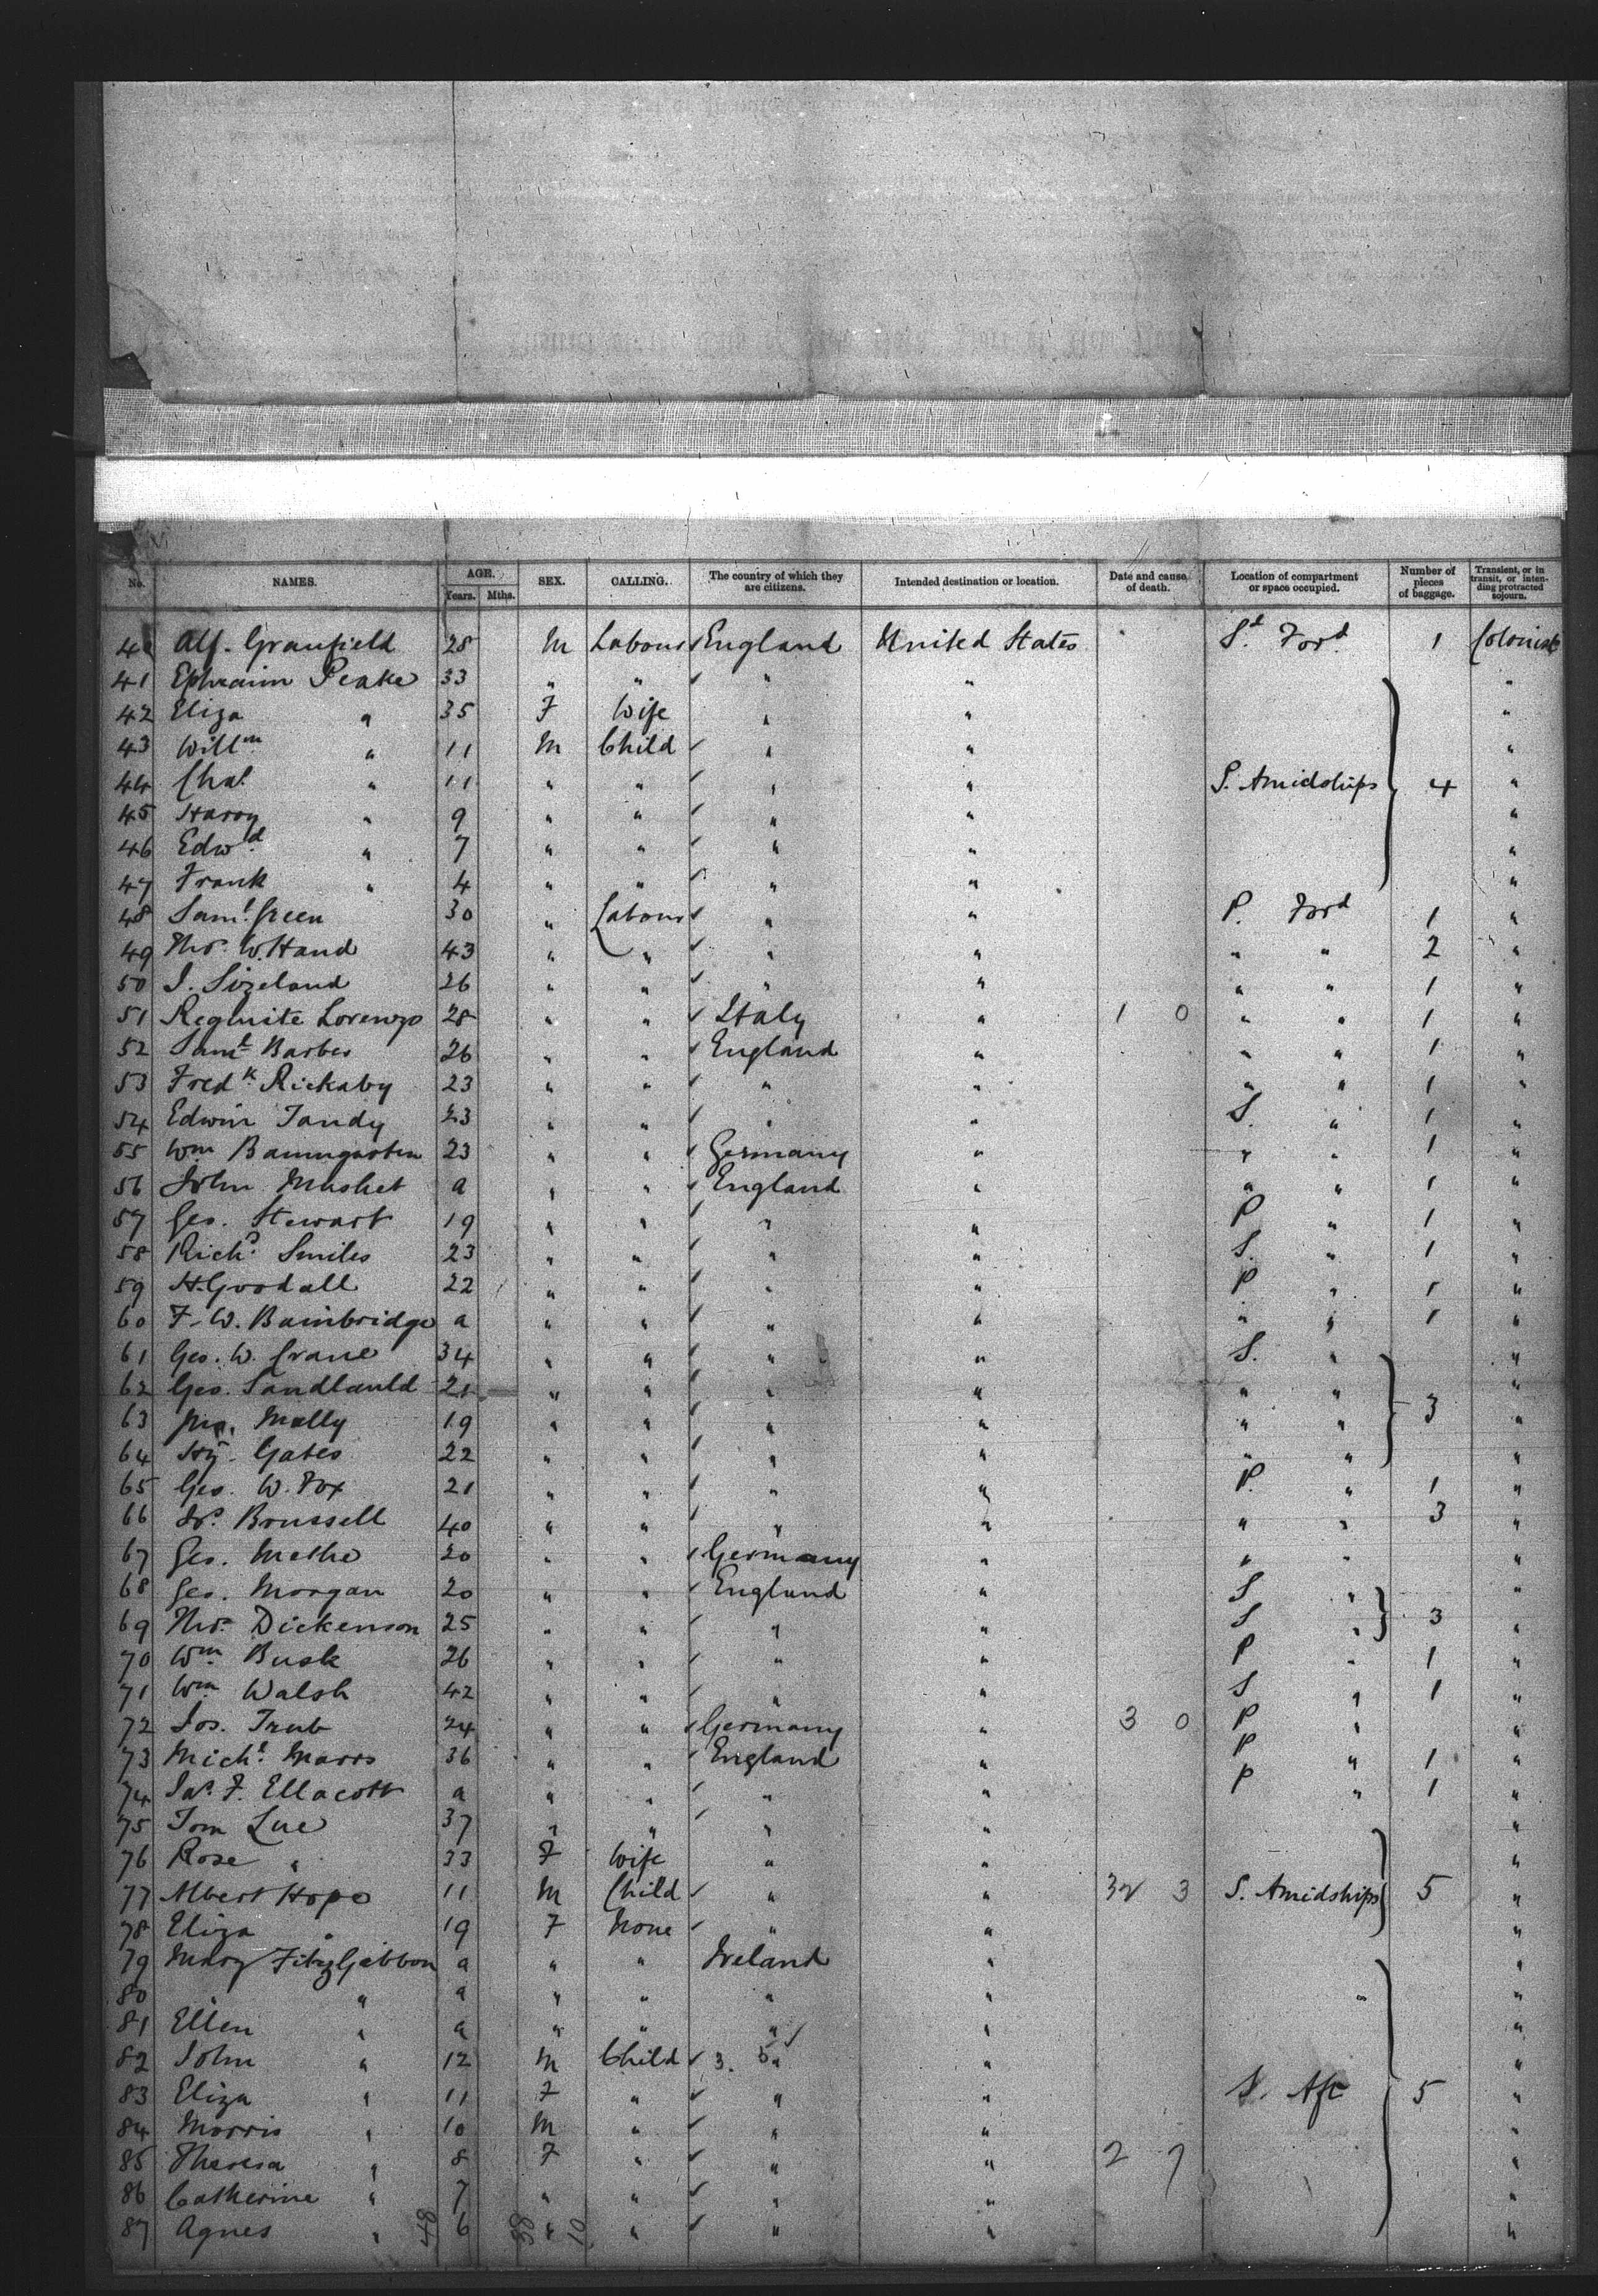 No. NAMES. AGE. Years. Mths. SEX. CALLING. The country of which they are citizens. Intended destination or location. Date and cause of death. Location of compartment or space occupied. Number of pieces of baggage. Transient, or in transit, or intending protracted sojourn.
40 Alf. Granfield 28 M Labour England United States Sd Ford 1 Colonist
41 Ephraim Peake 33 " " " " "
42 Eliza " 35 F Wife " " "
43 Willm " 11 M Child " " "
44 Chas. " 11 " " " " S. Amidships 4 "
45 Harry " 9 " " " " "
46 Edwd " 7 " " " " "
47 Frank " 4 " " " " "
48 Saml Green 30 " Labour " " P. Ford 1 "
49 Thos. W. Hand 43 " " " " " " 2 "
50 J. Sizeland 26 " " " " " " 1 "
51 Lorenzo 28 " " Italy " 1 0 " " 1 "
52 Saml Barber 26 " " England " " " 1 "
53 Fredk Rickaby 23 " " " " " " 1 "
54 Edwin Tandy 23 " " " " S. " 1 "
55 Wm Baumgarten 23 " " Germany " " " 1 "
56 John Mushet a " " England " " " 1 "
57 Geo. Stewart 19 " " " " P " 1 "
58 Richd Smiles 23 " " " " S. " 1 "
59 H. Goodall 22 " " " " P " 1 "
60 F. W. Bainbridge a " " " " " " 1 "
61 Geo. W. Crane 34 " " " " S. " "
62 Geo. 21 " " " " " " "
63 Molly 19 " " " " " " 3 "
64 Hy. Gates 22 " " " " " " "
65 Geo. W. Fox 21 " " " " P. " 1 "
66 Brussell 40 " " " " " " 3 "
67 Geo. Methe 20 " " Germany " " " "
68 Geo. Morgan 20 " " England " S " "
69 Thos. Dickenson 25 " " " " S " 3 "
70 Wm Busk 26 " " " " P " 1 "
71 Wm Walsh 42 " " " " S " 1 "
72 Jos. Trub 24 " " Germany " 3 0 P " "
73 Michl Marrs 36 " " England " P " 1 "
74 Jas. F. Ellacott a " " " " P " 1 "
75 Tom Lue 37 " " " " "
76 Rose " 33 F Wife " " "
77 Albert Hope 11 M Child " " 32 3 S. Amidships 5 "
78 Eliza " 19 F None " " "
79 Mary FitzGibbon a " " Ireland " "
80 " " a " " " " " "
81 Ellen " a " " " " "
82 John " 12 M Child 3. 5 " " "
83 Eliza " 11 F " " " S. Aft 5 "
84 Morris " 10 M " " " "
85 Theresa " 8 F " " " 2 7 "
86 Catherine " 7 " " " " "
87 Agnes " 6 " " " " "
48 38 10